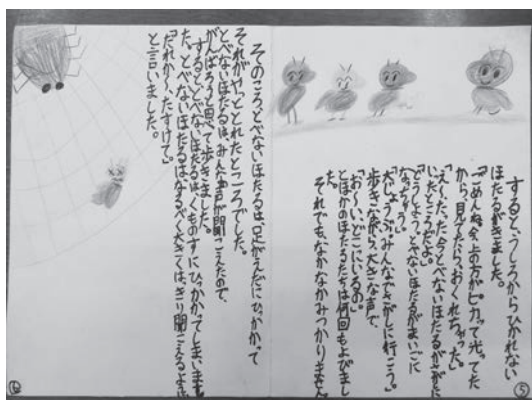 するとうしろからひかれない
ほたるがきました。
「ごめんね。今、上の方がピカって光ってた
から、見てたらおくれちゃった。」
「え〜、たった今、とべないほたるがさがに
いったところだよ。」
「どうしよう。とべないほたるがまいごに
なっちゃう。」
「大じょうぶ。みんなでさがしに行こう。」
歩きながら、大きな声で、
「お〜い、どこにいるの。」
とほかのほたるたちは何回もよびまし
た。
それでも、なかなかみつかりません。
⑤
そのころ、とべないほたるは、足がえだにひっかかって
それがやっととれたところでした。
とべないほたるは、みんなの声が聞こえたので、
がんばろうと思って歩きました。
するととべないほたるは、くものすにひっかかってしまいまし
た。とべないほたるはなるべく大きくはっきり聞こえるように
「だれか〜、たすけて。」
と言いました。
⑥